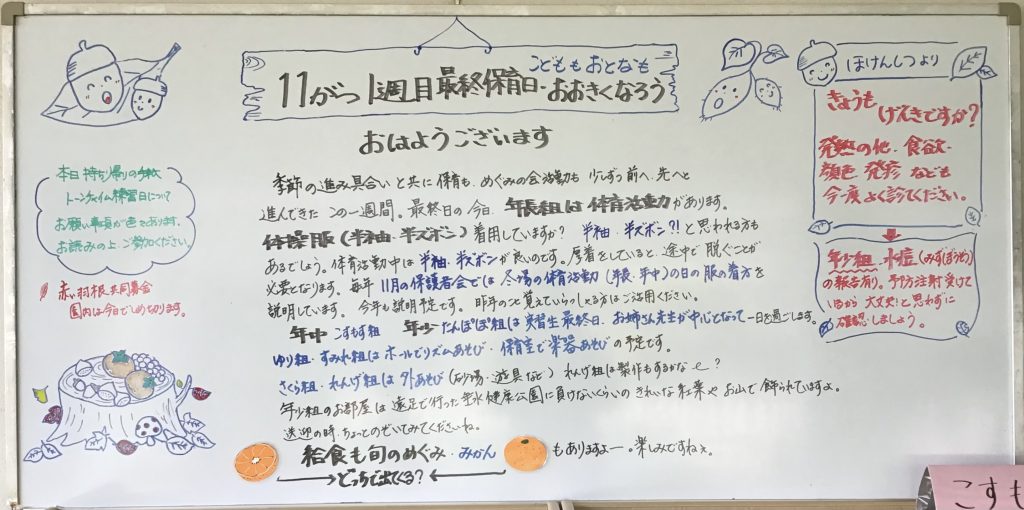 こどももおとなも
11がつ1週目最終保育日・おおきくなろう
おはようございます
季節の進み具合いと共に保育も、めぐみの会活動も 少しずつ前へ、先へと
進んできた この一週間。最終日の今日、年長組は 体育活動があります。
体操服(半袖・半ズボン)着用していますか? 半袖・半ズボン?!と思われる方も
あるでしょう。体育活動中は 半袖、半ズボンが良いのです。厚着をしていると、途中で 脱ぐことが
必要となります。毎年 11月の保護者会では 冬場の体育活動(年長、年中)の日の服の着方を
説明しています。 今年も説明予定です。昨年のこと覚えていらっしゃる方はご活用ください。
年中 こすもす組 年少 たんぽぽ組は 実習生最終日、お姉さん先生が中心となって一日を過ごします。
ゆり組・すみれ組は ホールでリズムあそび・保育室で楽器あそびの予定です。
さくら組・れんげ組は 外あそび(砂場・遊具など) れんげ組は製作もするかな?
年少組のお部屋は 遠足で行った 垂水健康公園に負けないくらいの きれいな紅葉や お山で飾られていますよ。
送迎の時、ちょっとのぞいてみてくださいね。
給食も旬のめぐみ・みかん もありますよー。楽しみですねぇ。
どっちで出てくる?
本日 持ち帰りの
トーンチャイム練習日について
お願い事項が 色々あります。
お読みの上、ご参加ください。
赤い羽根共同募金
園内は今日でしめ切ります。
ほけんしつより
きょうも
げんきですか?
発熱の他、食欲、
顔色、発疹なども
今一度よく診てください。
年少組 水痘(みずぼうそう)
の報告有り。予防注射受けて
いるから大丈夫!と思わずに
確認しましょう。
こすも